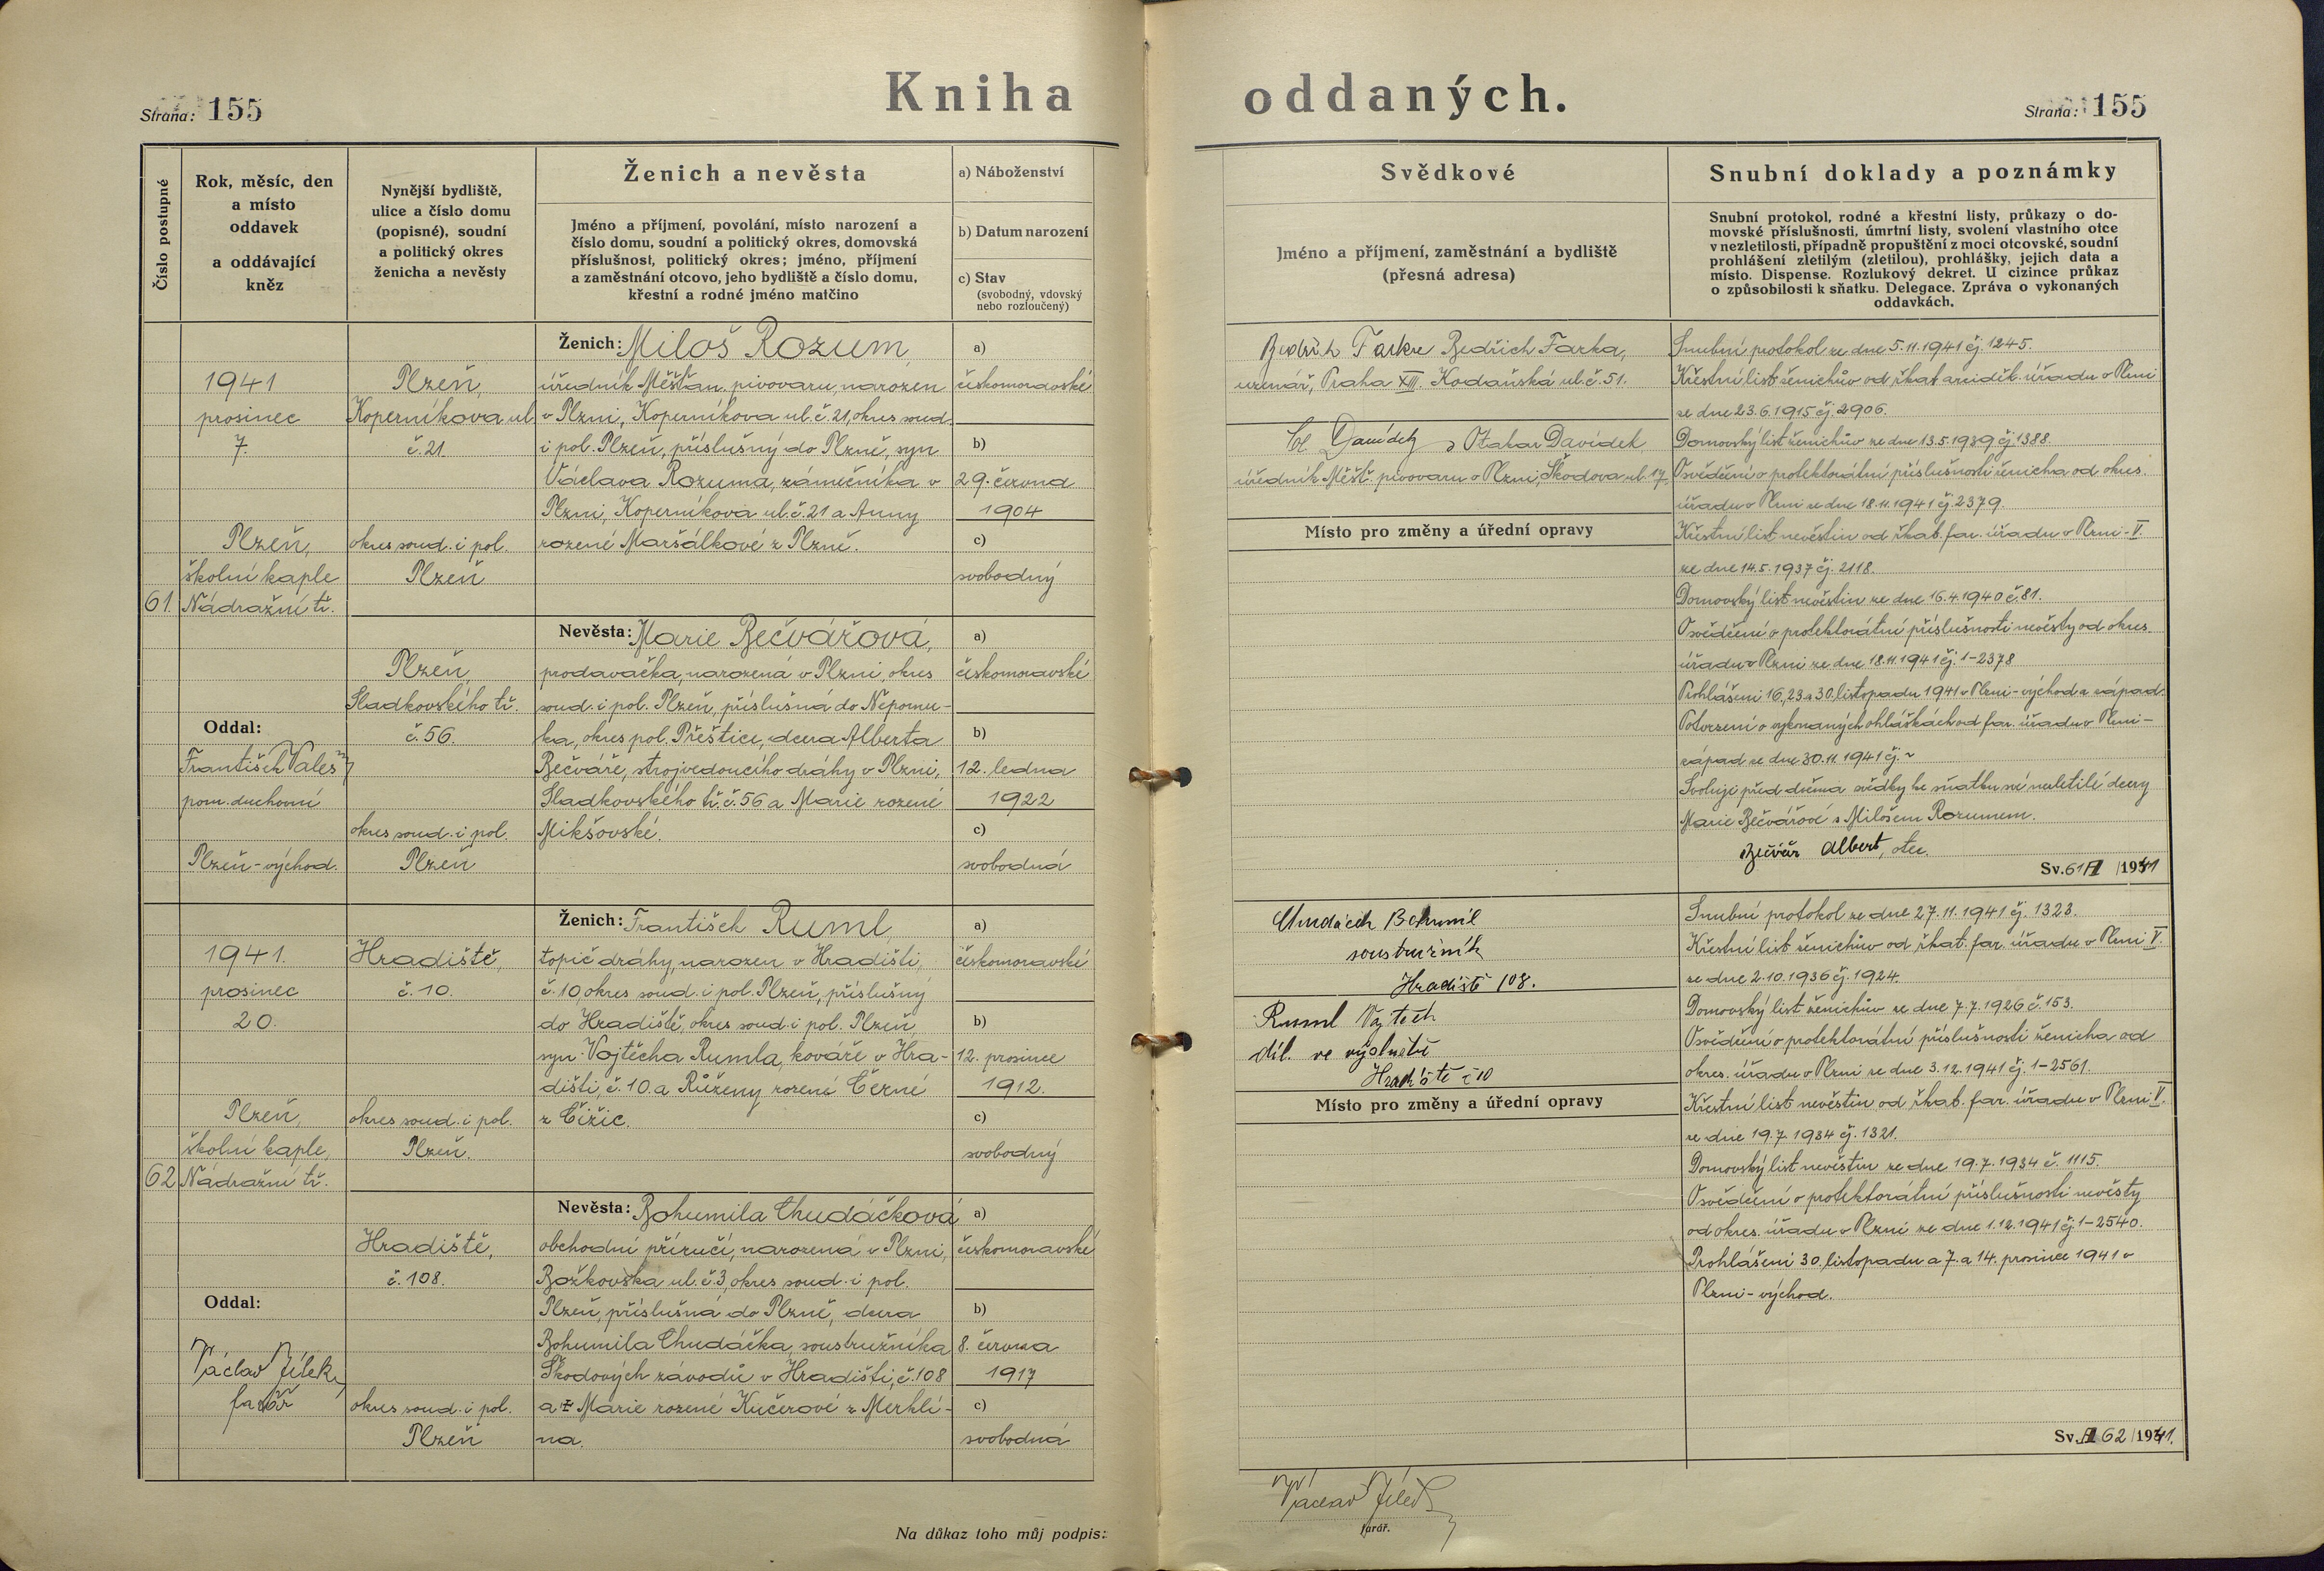 Strana: 155
Kniha oddaných.
Strana: 155
Číslo postupné
Rok, měsíc, den
a místo
oddavek
a oddávající
kněz
Nynější bydliště,
ulice a číslo domu
(popisné), soudní
a politický okres
ženicha a nevěsty
Ženich a nevěsta
Jméno a příjmení, povolání, místo narození a
číslo domu, soudní a politický okres, domovská
příslušnost, politický okres; jméno, příjmení
a zaměstnání otcovo, jeho bydliště a číslo domu,
křestní a rodné jméno matčino
a) Náboženství
b) Datum narození
c) Stav
(svobodný, vdovský
nebo rozloučený)
Svědkové
Jméno a příjmení, zaměstnání a bydliště
(přesná adresa)
Snubní doklady a poznámky
Snubní protokol, rodné a křestní listy, průkazy o do-
movské příslušnosti, úmrtní listy, svolení vlastního otce
v nezletilosti, případně propuštění z moci otcovské, soudní
prohlášení zletilým (zletilou), prohlášky, jejich data a
místo. Dispense. Rozlukový dekret. U cizince průkaz
o způsobilosti k sňatku. Delegace. Zpráva o vykonaných
oddavkách.
61.
1941
prosinec
7.
Plzeň,
školní kaple
Nádražní tř.
Oddal:
František Valeš
pom. duchovní
Plzeň-východ.
Plzeň,
Koperníkova ul.
č. 21.
okres soud. i pol.
Plzeň
Plzeň,
Sladkovského tř.
č. 56.
okres soud. i pol.
Plzeň
Ženich: Miloš Rozum
úředník Měšťan. pivovaru, narozen
v Plzni, Koperníkova ul. č. 21, okres soud.
i pol. Plzeň, příslušný do Plzně, syn
Václava Rozuma, zámečníka v
Plzni, Koperníkova ul. č. 21 a Anny
rozené Maršálkové z Plzně.
Nevěsta: Marie Bečvářová,
prodavačka, narozená v Plzni, okres
soud. i pol. Plzeň, příslušná do Nepomu-
ka, okres pol. Přeštice, dcera Alberta
Bečváře, strojvedoucího dráhy v Plzni,
Sladkovského tř. č. 56 a Marie rozené
Mikšovské.
a)
českomoravské
b)
29. června
1904
c)
svobodný
a)
českomoravské
b)
12. ledna
1922
c)
svobodná
Bedřich Farka,
uzenář, Praha XIII. Kodaňská ul. č. 51.
Otakar Davídek
úředník Měšť. pivovaru v Plzni, Škodova ul. 17
Místo pro změny a úřední opravy
Snubní protokol ze dne 5.11.1941 čj. 1245.
Křestní list ženichův od řkat. arciděk. úřadu v Plzni
ze dne 23.6.1915 čj. 2906.
Domovský list ženichův ze dne 13.5.1939 čj 1388.
Osvědčení o protektorátní příslušnosti ženicha od okres.
úřadu v Plzni ze dne 18.11.1941 čj. 2379.
Křestní list nevěstin od řkat. far. úřadu v Plzni-V.
ze dne 14.5.1937 čj. 2118.
Domovský list nevěstin ze dne 16.4.1940 č. 81.
Osvědčení o protektorátní příslušnosti nevěsty od okres.
úřadu v Plzni ze dne 18.11.1941 čj. 1-2378
Prohlášeni 16., 23. a 30. listopadu 1941 v Plzni-východ a západ.
Potvrzení o vykonaných ohláškách od far. úřadu v Plzni-
západ ze dne 30.11.1941 čj.
Svoluji před dvěma svědky ke sňatku své nezletilé dcery
Marie Bečvářové s Milošem Rozumem.
Bečvář Albert, otec.
Sv. 61 /1941
62
1941.
prosinec
20.
Plzeň,
školní kaple,
Nádražní tř.
Oddal:
Václav Jílek,
farář
Hradiště,
č. 10.
okres soud. i pol.
Plzeň.
Hradiště,
č. 108.
okres soud. i pol.
Plzeň
Ženich: František Ruml,
topič dráhy, narozen v Hradišti,
č. 10, okres soud. i pol. Plzeň, příslušný
do Hradiště, okres soud. i pol. Plzeň
syn Vojtěcha Rumla, kováře v Hra-
dišti, č. 10 a Růženy rozené Černé
z Čižic.
Nevěsta: Bohumila Chudáčková
obchodní příručí, narozená v Plzni,
Božkovská ul. č. 3, okres soud. i pol.
Plzeň, příslušná do Plzně, dcera
Bohumila Chudáčka, soustružníka
Škodových závodů v Hradišti, č. 108
a Marie rozené Kučerové z Merklí-
na.
a)
českomoravské
b)
12. prosince
1912.
c)
svobodný
a)
českomoravské
b)
8. června
1917
c)
svobodná
Chudáček Bohumil
soustružník
Hradiště 108.
Ruml Vojtěch
díl. ve výslužbě
Hradiště č 10
Místo pro změny a úřední opravy
Snubní protokol ze dne 27.11.1941 čj. 1323.
Křestní list ženichův od řkat. far. úřadu v Plzni V.
ze dne 2.10.1936 čj. 1924.
Domovský list ženichův ze dne 7.7.1926 č. 153.
Osvědčení o protektorátní příslušnosti ženicha od
okres. úřadu v Plzni ze dne 3.12.1941 čj. 1-2561.
Křestní list nevěstin od řkat. far. úřadu v Plzni V.
ze dne 19.7.1934 čj. 1321.
Domovský list nevěstin ze dne 19.7.1934 č. 1115.
Osvědčení o protektorátní příslušnosti nevěsty
od okres. úřadu v Plzni ze dne 1.12.1941 čj 1-2540.
Prohlášeni 30. listopadu a 7. a 14. prosince 1941 v
Plzni-východ.
Sv. 62 /1941.
Na důkaz toho můj podpis:
Václav Jílek
farář.